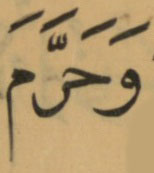 وَحَرَّمَ